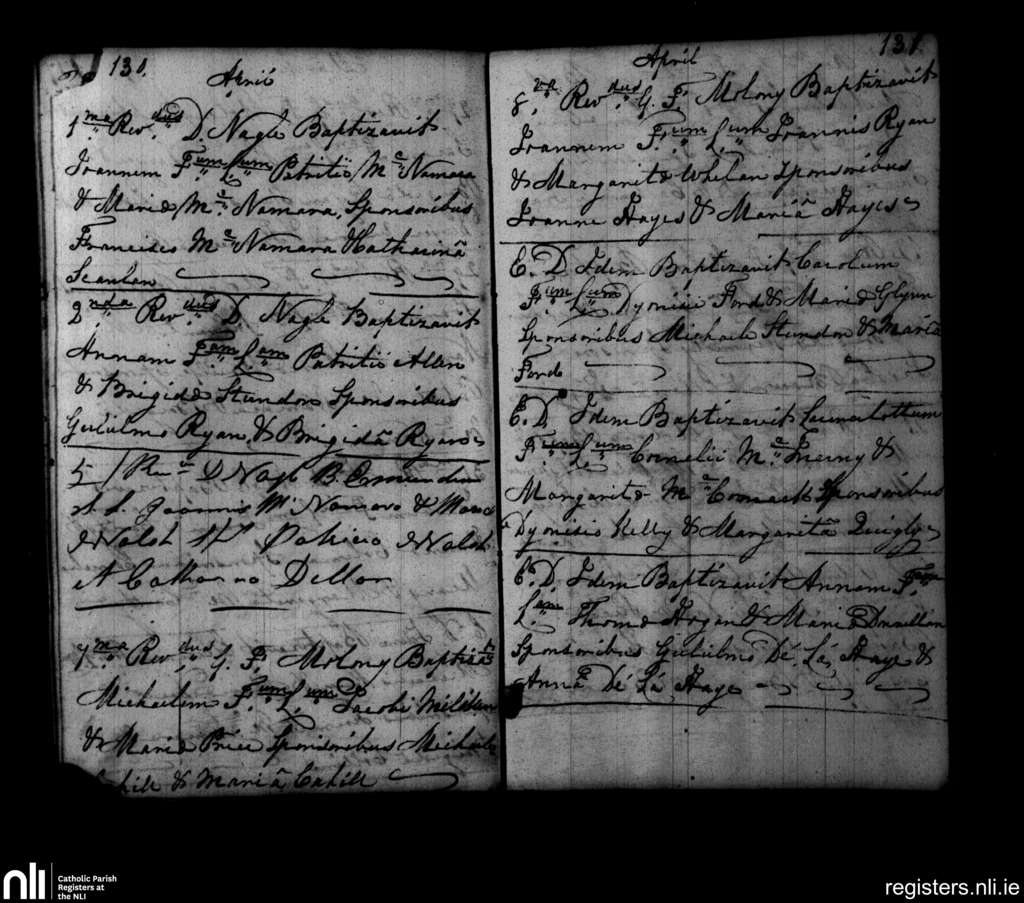 131.
April
1.ma Rev.dus D. Nagle Baptizavit
Joannem F.um L.um Patritii Mc Namara
& Mariæ Mc. Namara, Sponsoribus
Francisco Mc Namara Katharinâ
Scanlan
2.nda Rev.dus D. Nagle Baptizavit
Annam F.am L.am Patritii Allen
& Brigidæ Stundon Sponsoribus
Gulielmo Ryan, & Brigidâ Ryan
5 / Rev D Nagl B.
Joannis Mc Namara & Maria
Walsh Patricio Walsh
et Catharina Dillon
7.ma Rev.dus G. F. Molony Baptizt
Michaelem F.um L.um Jacobi
& Mariæ Price Sponsoribus Michaele
Cahill & Mariâ Cahill
131.
April
8.va Rev.dus G. F. Molony Baptizavit
Joannem F.um L.um Joannis Ryan
& Margaritæ Whelan Sponsoribus
Joanne Hayes & Mariâ Hayes
E. D. Idem Baptizavit Carolum
F.um L.um Dyonisii Ford & Mariæ Glynn
Sponsoribus Michaele Stundon & Mariâ
Ford
E. D. Idem Baptizavit
F.um L.um Cornelii Mc. Inerny &
Margaritæ Mc Cormack Sponsoribus
Dyonisio Kelly & Margaritâ Quigly
E. D. Idem Baptizavit Annam F.am
L.am Thomæ Hogan & Mariæ
Sponsoribus Gulielmo Dé Lá Haye &
Annâ Dé Lá Haye
nli
Catholic Parish
Registers at
the NLI
registers.nli.ie